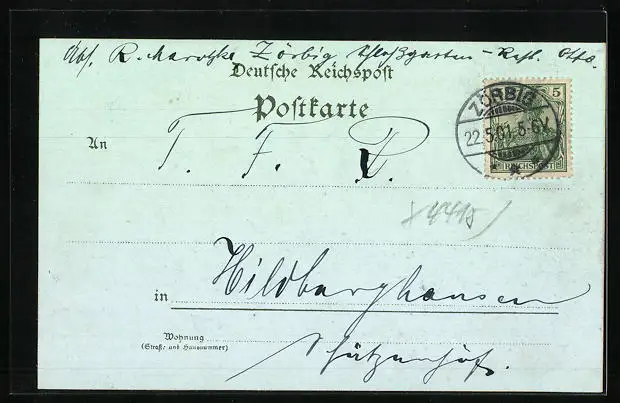 Abs. R. Marotzke Zörbig Schloßgarten-Rest.
Deutsche Reichspost
Postkarte
5
ZÖRBIG
22.5.01.5-6N.
REICHSPOST
An
T. F. P.
4415
in Hildburghausen
Wohnung
(Straße und Hausnummer)
Schützenhof.